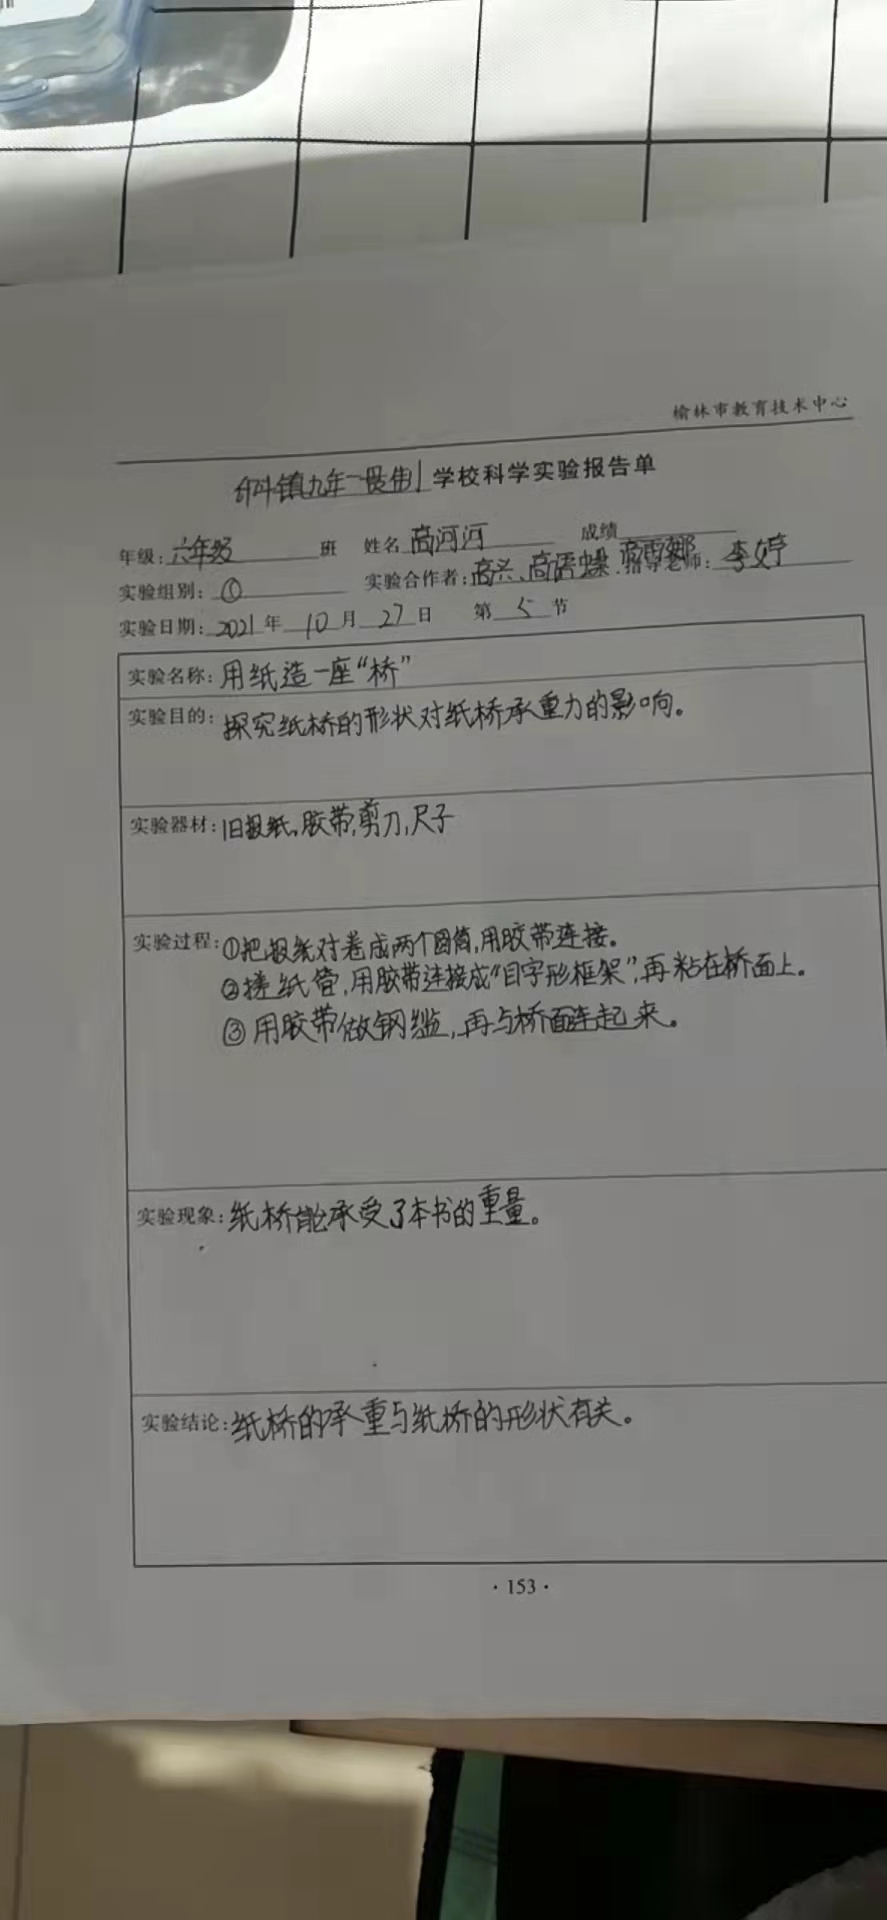 榆林市教育技术中心
镇九年一贯制学校科学实验报告单
年级：六年级 班 姓名 高河河 成绩
实验组别：① 实验合作者：高兴、高语蝶、高雪娜 指导老师：李婷
实验日期：2021年10月27日 第5节
实验名称：用纸造一座“桥”
实验目的：探究纸桥的形状对纸桥承重力的影响。
实验器材：旧报纸，胶带，剪刀，尺子
实验过程：①把报纸对卷成两个圆筒，用胶带连接。
②搓纸管，用胶带连接成“目字形框架”，再粘在桥面上。
③用胶带做钢缆，再与桥面连起来。
实验现象：纸桥能承受了本书的重量。
实验结论：纸桥的承重与纸桥的形状有关。
·153·